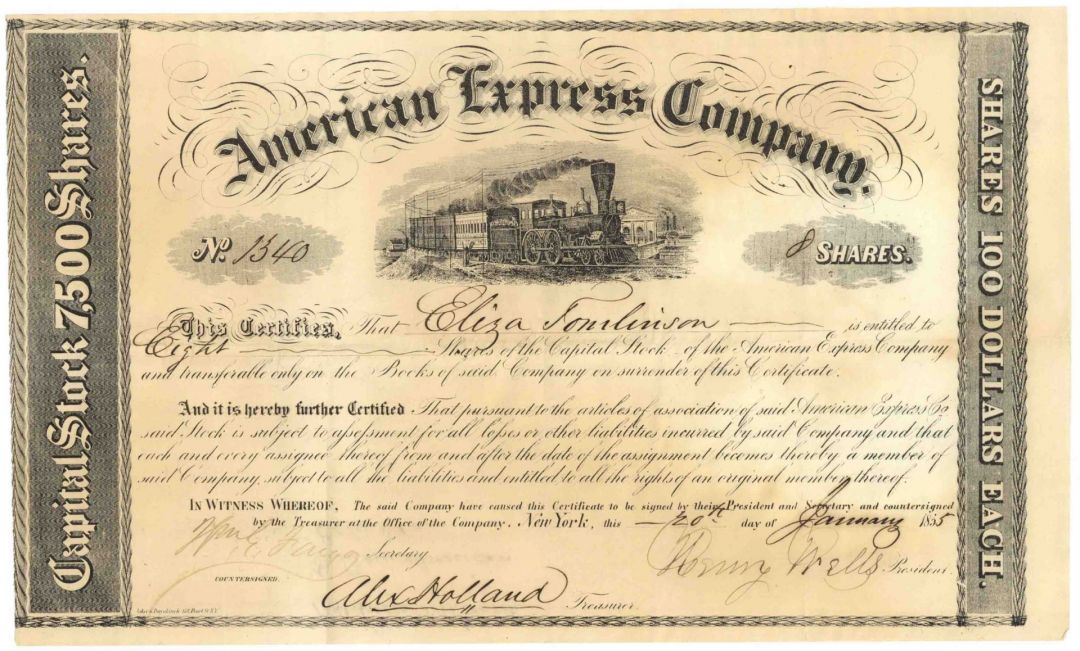 American Express Company.
Capital Stock 7,500 Shares.
No. 1340
8 SHARES.
This Certifies, That Eliza Tomlinson is entitled to
Eight Shares of the Capital Stock of the American Express Company
and transferable only on the Books of said Company on surrender of this Certificate.
And it is hereby further Certified That pursuant to the articles of association of said American Express Co
said Stock is subject to assessment for all losses or other liabilities incurred by said Company and that
each and every assignee thereof from and after the date of the assignment becomes thereby a member of
said Company, subject to all the liabilities and entitled to all the rights of an original member thereof.
IN WITNESS WHEREOF, The said Company have caused this Certificate to be signed by their President and Secretary and countersigned
by the Treasurer at the Office of the Company. New York, this 20th day of January 1855
Wm G Fargo Secretary
Henry Wells President
COUNTERSIGNED.
Alex Holland Treasurer
SHARES 100 DOLLARS EACH.